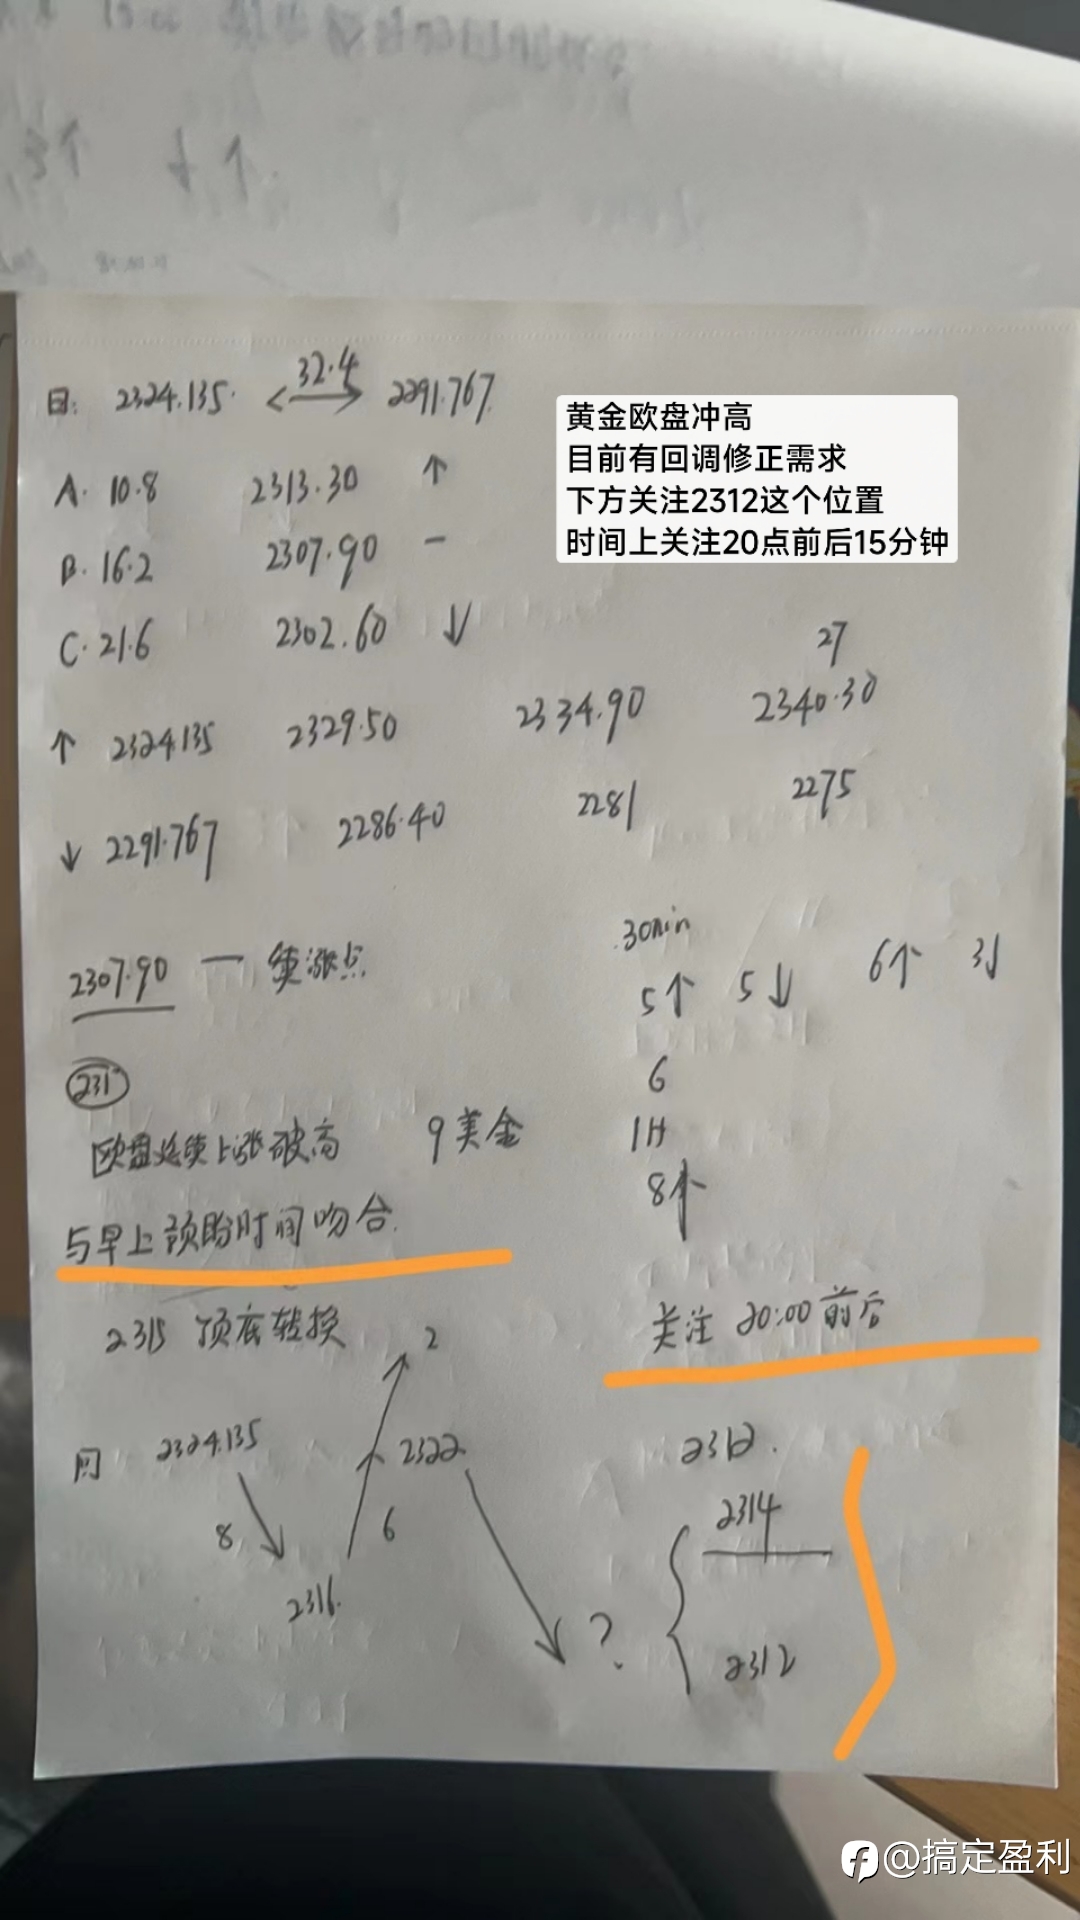 日: 2324.135. 32.4 2291.767.
黄金欧盘冲高
目前有回调修正需求
下方关注2312这个位置
时间上关注20点前后15分钟
A. 10.8 2313.30 ↑
B. 16.2 2307.90 —
C. 21.6 2302.60 ↓
27
↑ 2324.135 2329.50 2334.90 2340.30
↓ 2291.767 2286.40 2281 2275
2307.90 — 续涨点
30min
5个 5↓ 6个 3↓
6
1H
8个
231
欧盘延续上涨破高 9美金
与早上预盼时间吻合.
2315 顶底转换
关注 20:00前后
2
2324.135 2322.
8 6
2316.
?
2312.
2314
2312
@搞定盈利